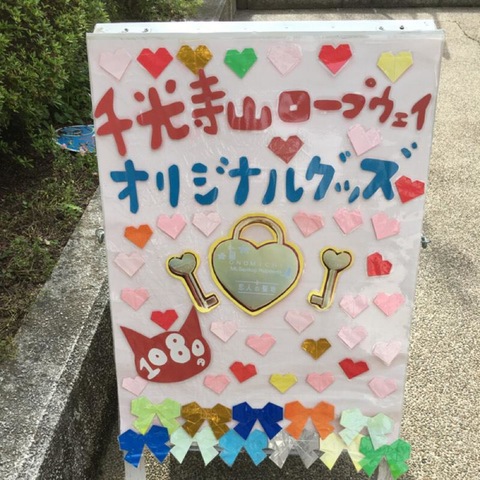 千光寺山ロープウェイ
オリジナルグッズ
1080円